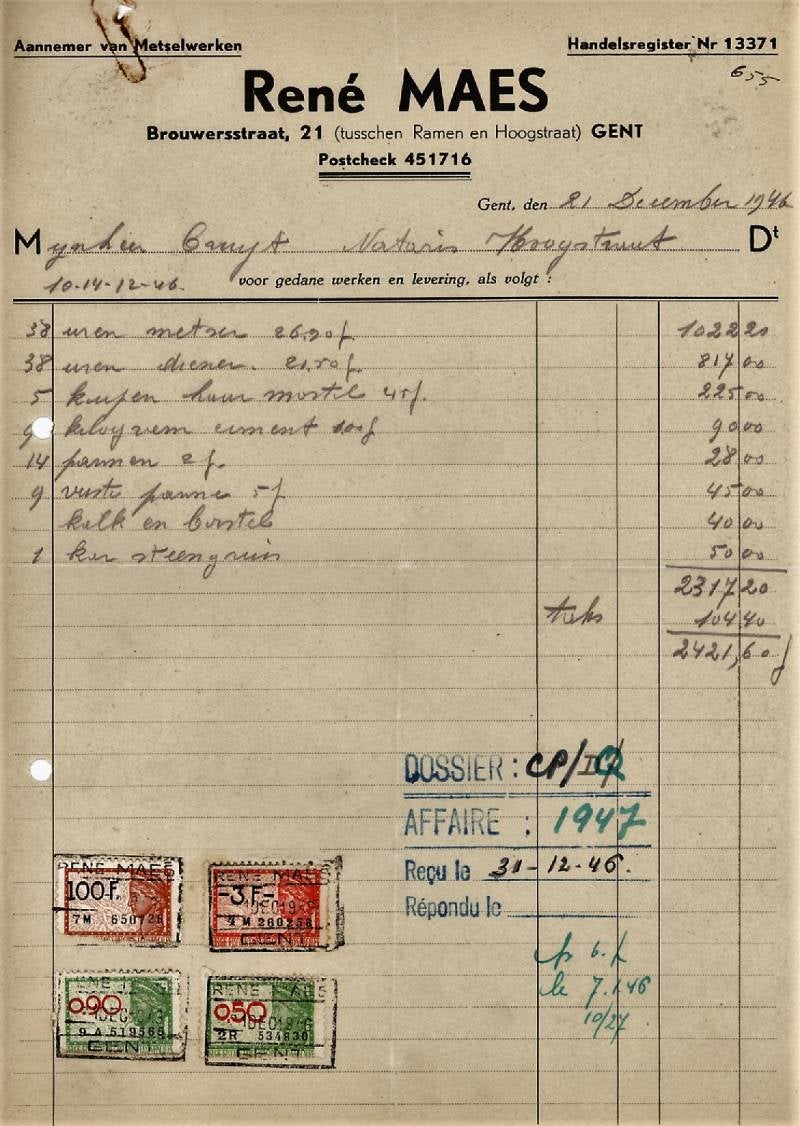 Aannemer van Metselwerken
Handelsregister Nr 13371
655
René MAES
Brouwersstraat, 21 (tusschen Ramen en Hoogstraat) GENT
Postcheck 451716
Gent, den 21 December 1946
Mynheer Cruyt Notaris Hoogstraat Dt
10-14-12-46. voor gedane werken en levering, als volgt :
38 uren metser 26,90 f. 1022 20
38 uren diener. 21,50 f. 817 00
5 kuipen haar mortel 45 f. 225 00
9 kilogram ciment 100 f 90 00
14 pannen 2 f. 28 00
9 vuste panne 5 f 45 00
kalk en borstel 40 00
1 kar steengruis 50 00
2317 20
taks 104 40
2421,60 f
DOSSIER : CP/
AFFAIRE : 1947
Reçu le 31-12-46.
Répondu le
le 7.1.46
10/27
RENÉ MAES
100 F.
7M 650726
RENE MAES
-3 F-
4 M 260258
GENT
0.90
9 A 519565
GENT
RENE MAES
0.50
2R 534830
GENT